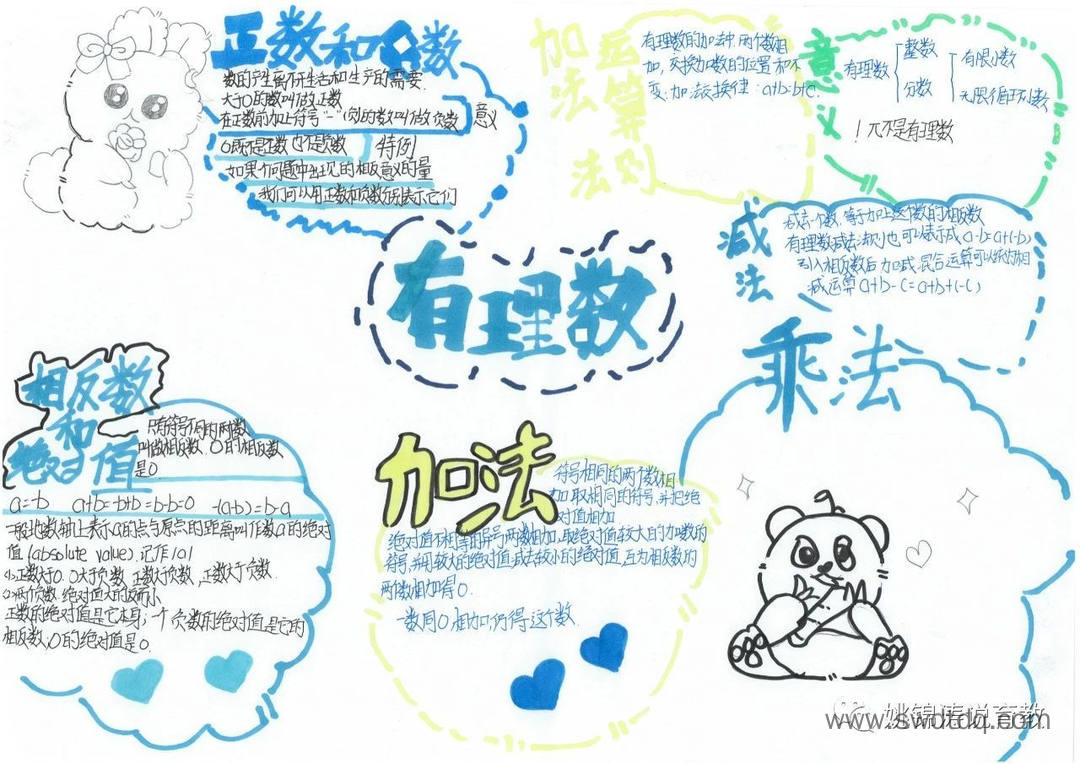 正数和负数
数的产生离不开生活和生产的需要.
大于0的数叫做正数
在正数前加上符号"-"(负)的数叫做负数
意义
0既不是正数也不是负数
特例
如果个问题中出现的相反意义的量
我们可以用正数和负数分别表示它们
加法
运算
法则
有理数的加法中,两个数相
加,交换加数的位置和不
变.加法交换律:a+b=b+c.
意义
有理数
整数
分数
有限小数
无限循环小数
!π不是有理数
减法
减去一个数,等于加上这个数的相反数
有理数减法法则也可以表示成a-b=a+(-b)
引入相反数后加减混合运算可以统为相
减运算a+b-c=a+b+(-c)
有理数
乘法
相反数
和
绝对值
只有符号不同的两数
叫做相反数.0的相反数
是0
a=-b a+b=-b+b=b-b=0 -(a-b)=b-a
一般地数轴上表示a的点与原点的距离叫作数a的绝对
值(absolute value),记作|a|
(1)正数大于0.0大于负数,正数于负数,正数大于负数.
(2)两个负数,绝对值大的反而小
正数的绝对值是它本身;一个负数的绝对值是它的
相反数,0的绝对值是0.
加法
符号相同的两个数相
加,取相同的符号,并把绝
对值相加
绝对值不相等的异号两数相加,取绝对值较大的加数的
符号,并用较大的绝对值,减去较小的绝对值,互为相反数的
两个数相加得0.
一数同0相加,仍得这个数.
姚锦涛说育教
www.swdtdq.com